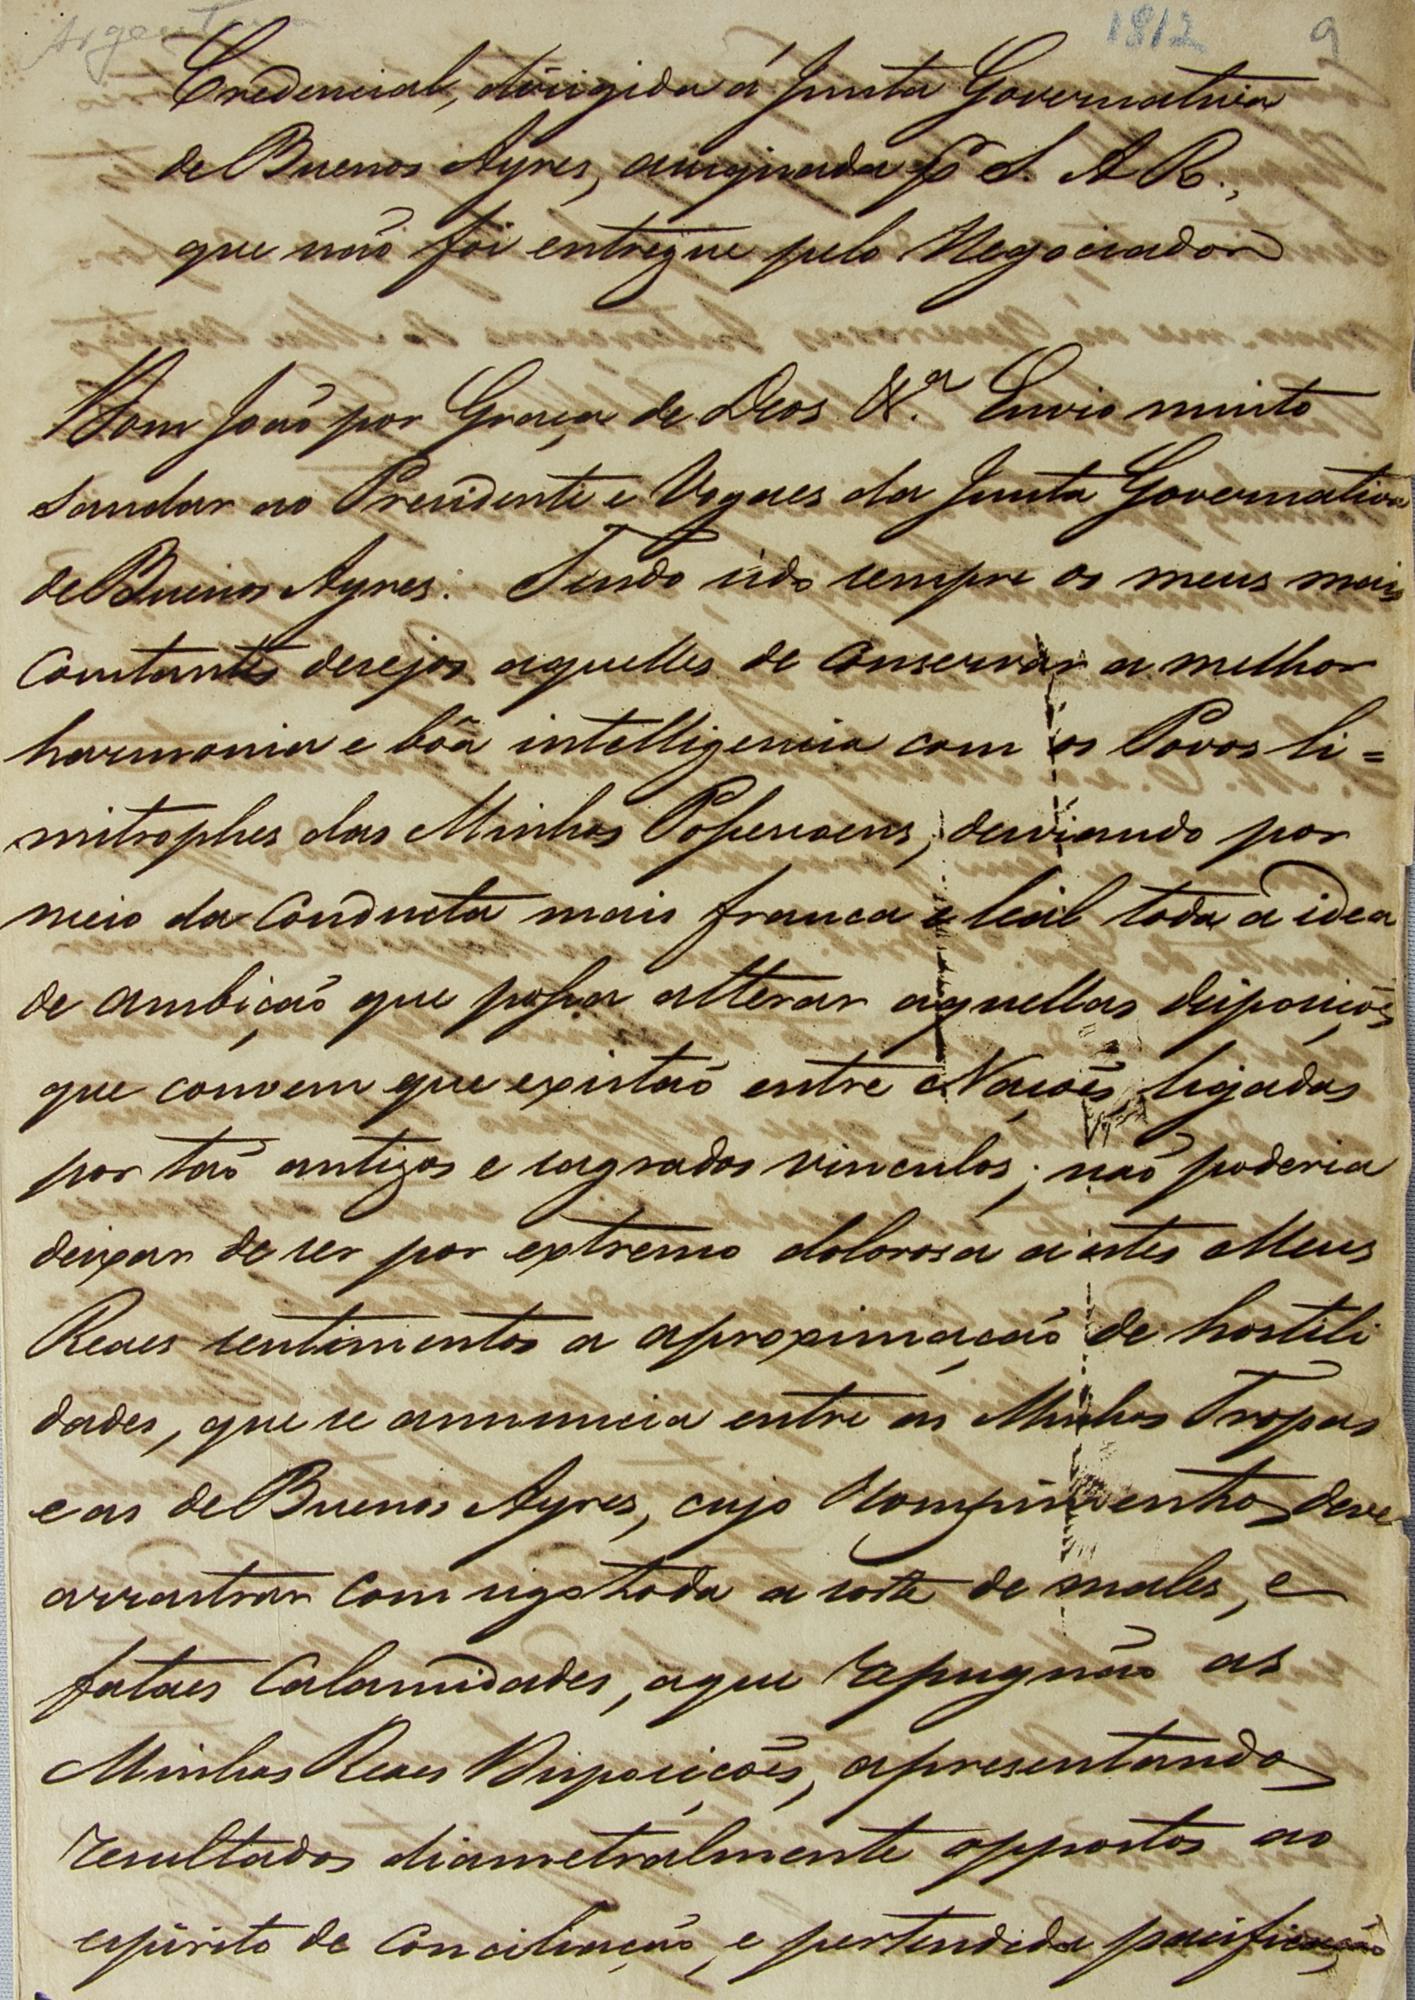 Argentina 1812 9
Credencial, dirigida á Junta Governativa
de Buenos Ayres, assignada p S. A. R.,
que não foi entregue pelo Negociador
Dom João por Graça de Deos &.ª Envio muito
saudar ao Presidente e Vogaes da Junta Governativa
de Buenos Ayres. Tendo sido sempre os meus mais
constantes desejos aquelles de conservar a melhor
harmonia e bôa intelligencia com os Povos li=
mitrophes das Minhas Possessoens, desviando por
meio da conducta mais franca e leal toda a idea
de ambição que possa alterar aquellas disposições
que convem que existão entre Nações ligadas
por tão antigos e sagrados vinculos; não poderia
deixar de ser por extremo dolorosa a estes Meus
Reaes sentimentos a aproximação de hostili
dades, que se annuncia entre as Minhas Tropas
e as de Buenos Ayres, cujo Rompimento deve
arrastrar comsigo toda a sorte de males, e
fataes calamidades, a que repugnão as
Minhas Reaes Disposições, apresentando
resultados diametralmente oppostos ao
espirito de conciliação, e pertendida pacificação